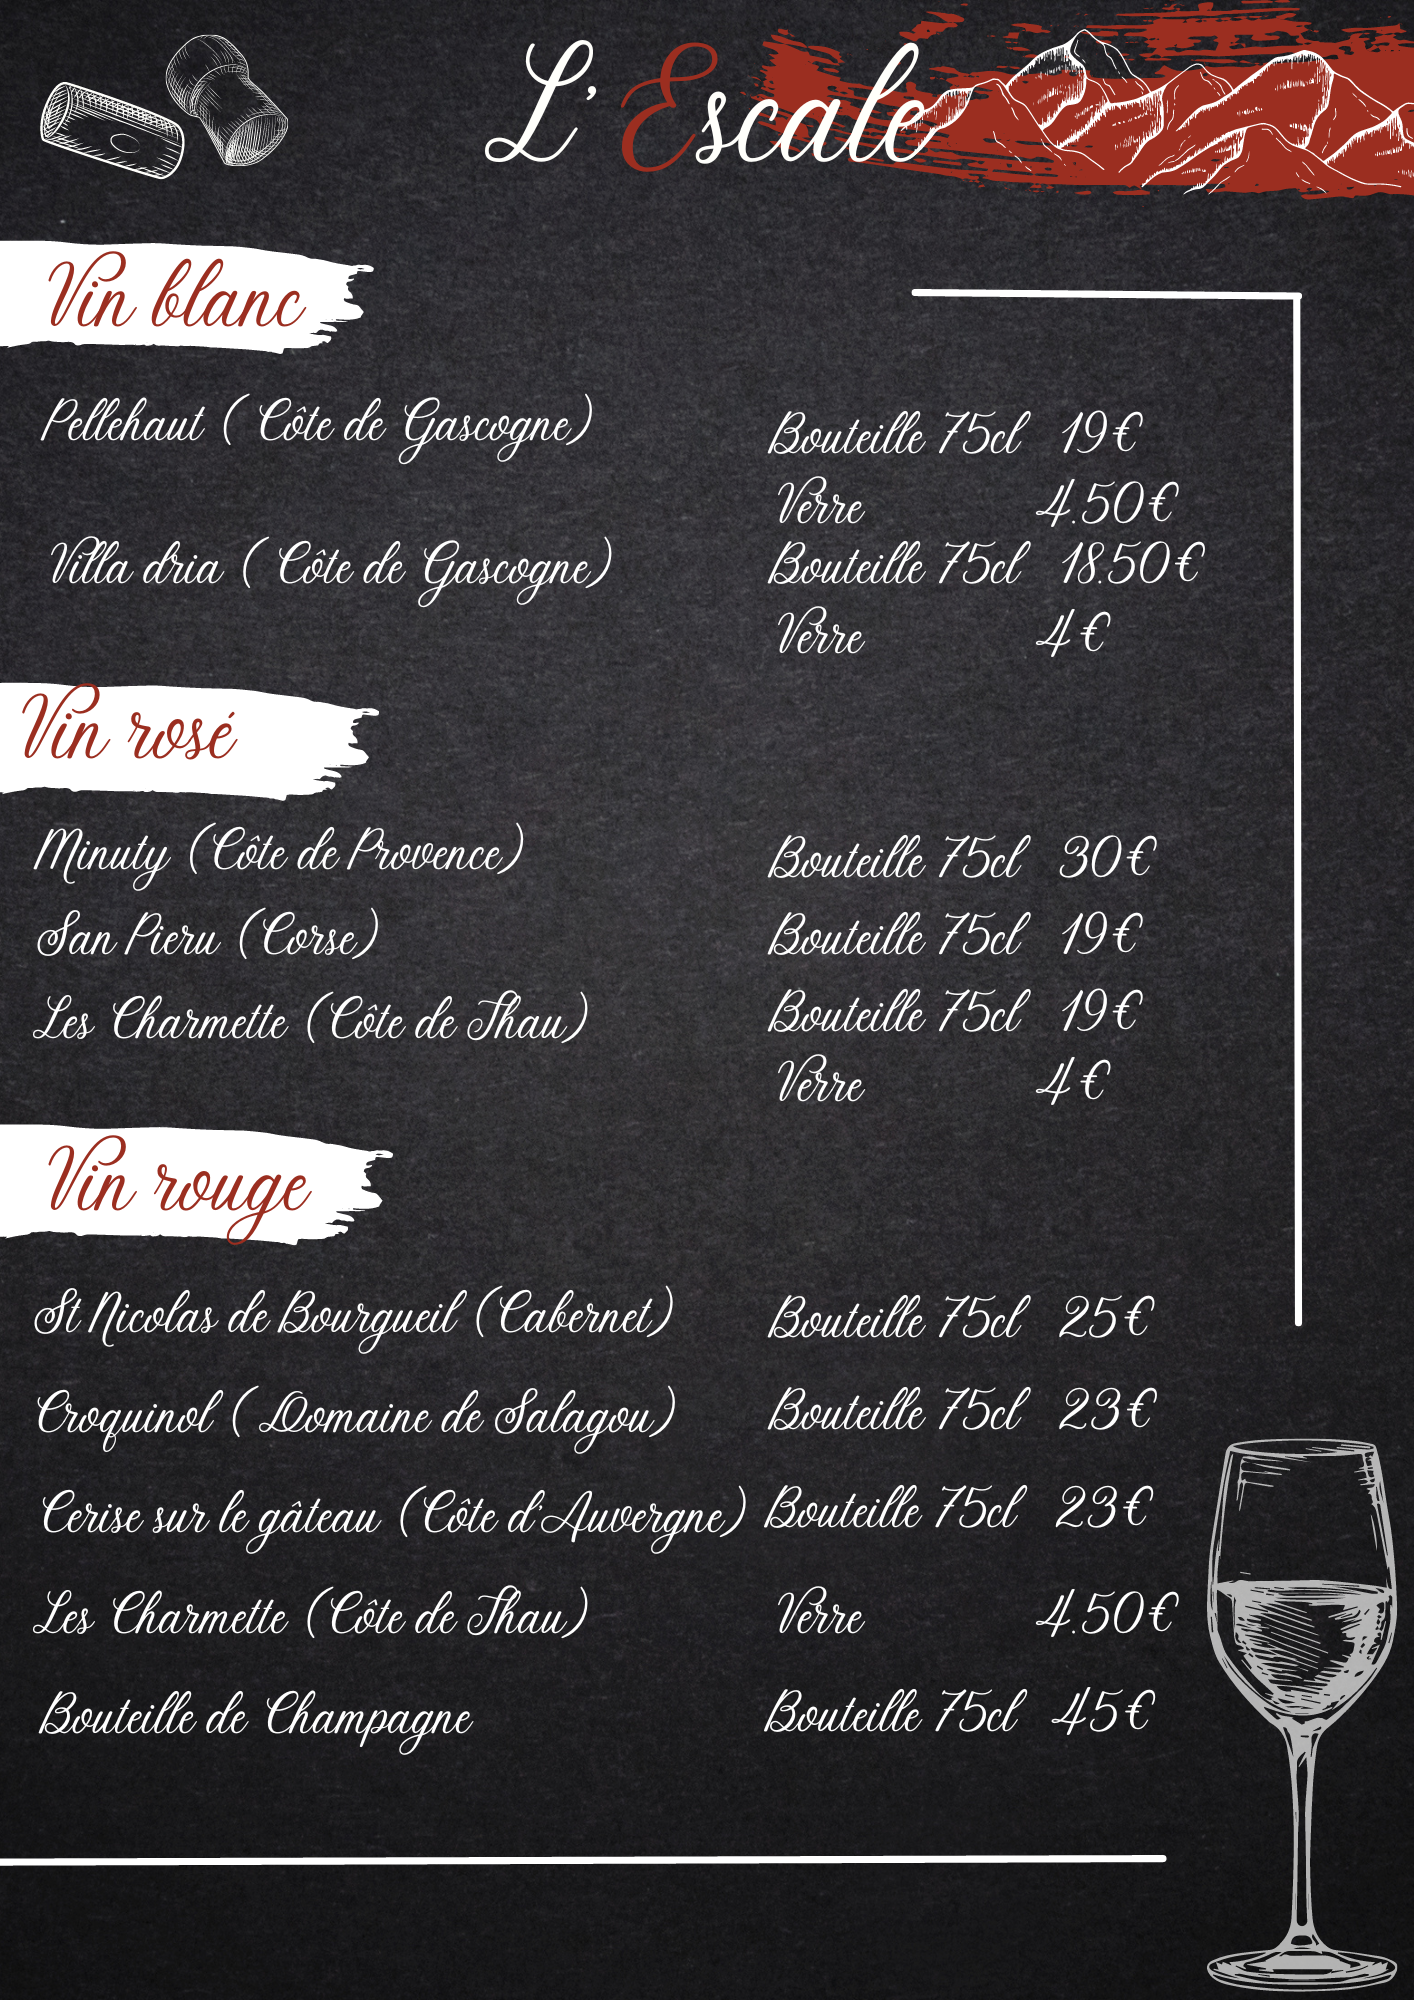 L'Escale
Vin blanc
Pellehaut ( Côte de Gascogne) Bouteille 75cl 19€
Verre 4.50€
Villa dria ( Côte de Gascogne) Bouteille 75cl 18.50€
Verre 4€
Vin rosé
Minuty (Côte de Provence) Bouteille 75cl 30€
San Pieru (Corse) Bouteille 75cl 19€
Les Charmette (Côte de Thau) Bouteille 75cl 19€
Verre 4€
Vin rouge
St Nicolas de Bourgueil (Cabernet) Bouteille 75cl 25€
Croquinol ( Domaine de Salagou) Bouteille 75cl 23€
Cerise sur le gâteau (Côte d'Auvergne) Bouteille 75cl 23€
Les Charmette (Côte de Thau) Verre 4.50€
Bouteille de Champagne Bouteille 75cl 45€